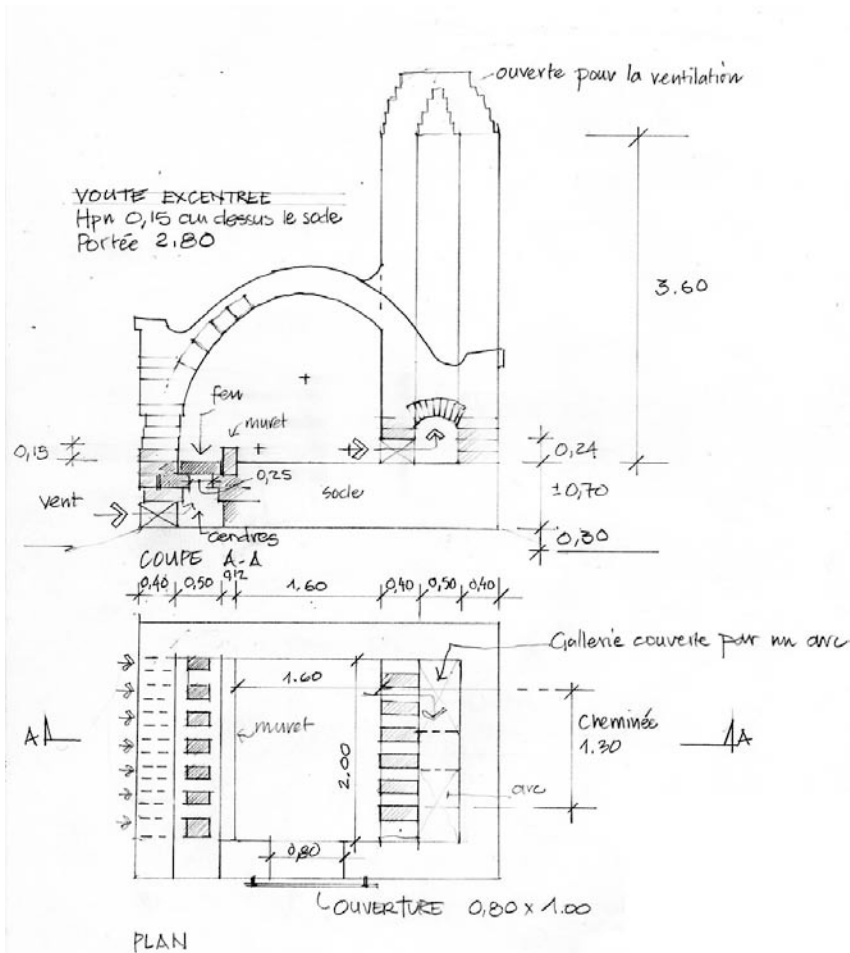 ouverte pour la ventilation
VOUTE EXCENTREE
Hpn 0,15 au dessus le socle
Portée 2,80
3.60
feu
muret
0,15
0,25
0,24
socle
±0,70
vent
cendres
0,30
COUPE A-A
0,40 0,50 0,12 1.60 0,40 0,50 0,40
Gallerie couverte par un arc
1.60
muret
Cheminée
1.30
A
A
2.00
arc
0,80
OUVERTURE 0,80 x 1.00
PLAN